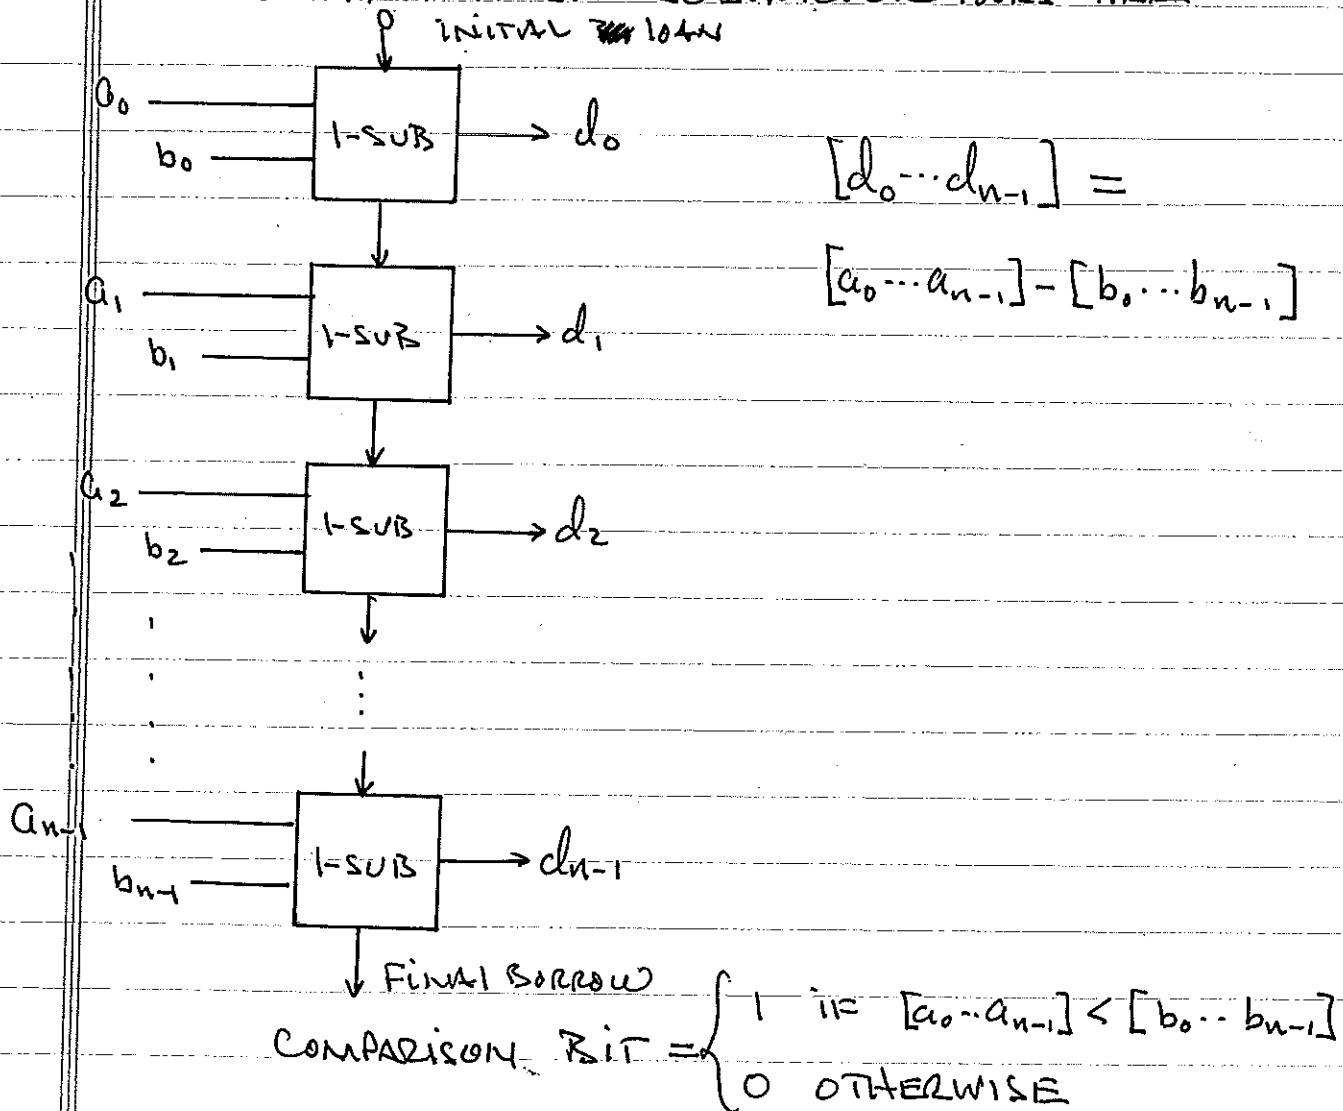 0 INITAL LOAN
a₀
b₀
1-SUB
d₀
[d₀...dₙ₋₁] =
[a₀...aₙ₋₁] - [b₀...bₙ₋₁]
a₁
b₁
1-SUB
d₁
a₂
b₂
1-SUB
d₂
aₙ₋₁
bₙ₋₁
1-SUB
dₙ₋₁
FINAL BORROW
COMPARISON BIT = { 1 IF [a₀..aₙ₋₁] < [b₀..bₙ₋₁]
0 OTHERWISE